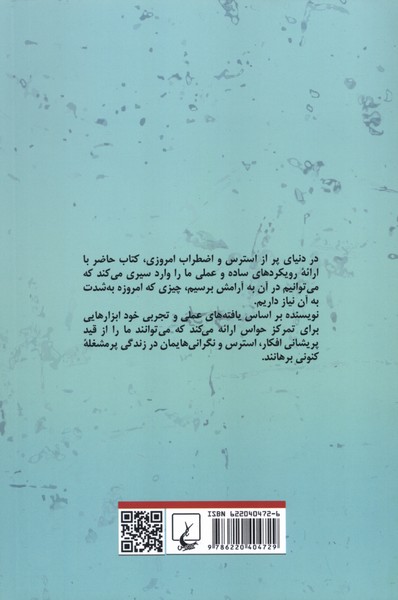 در دنیای پر از استرس و اضطراب امروزی، کتاب حاضر با
ارائهٔ رویکردهای ساده و عملی ما را وارد سیری می‌کند که
می‌توانیم در آن به آرامش برسیم، چیزی که امروزه به‌شدت
به آن نیاز داریم.
نویسنده بر اساس یافته‌های عملی و تجربی خود ابزارهایی
برای تمرکز حواس ارائه می‌کند که می‌توانند ما را از قید
پریشانی افکار، استرس و نگرانی‌هایمان در زندگی پرمشغلهٔ
کنونی برهانند.
ISBN 622040472-6
9 786220 404729